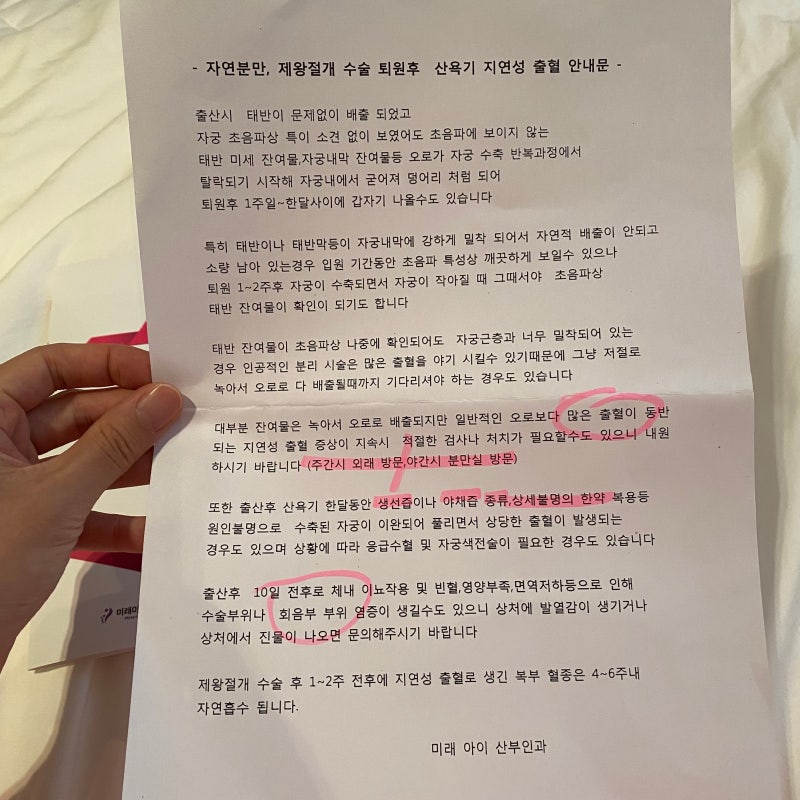 - 자연분만, 제왕절개 수술 퇴원후 산욕기 지연성 출혈 안내문 -
출산시 태반이 문제없이 배출 되었고
자궁 초음파상 특이 소견 없이 보였여도 초음파에 보이지 않는
태반 미세 잔여물,자궁내막 잔여물등 오로가 자궁 수축 반복과정에서
탈락되기 시작해 자궁내에서 굳어져 덩어리 처럼 되어
퇴원후 1주일~한달사이에 갑자기 나올수도 있습니다
특히 태반이나 태반막등이 자궁내막에 강하게 밀착 되어서 자연적 배출이 안되고
소량 남아 있는경우 입원 기간동안 초음파 특성상 깨끗하게 보일수 있으나
퇴원 1~2주후 자궁이 수축되면서 자궁이 작아질 때 그때서야 초음파상
태반 잔여물이 확인이 되기도 합니다
태반 잔여물이 초음파상 나중에 확인되어도 자궁근층과 너무 밀착되어 있는
경우 인공적인 분리 시술은 많은 출혈을 야기 시킬수 있기때문에 그냥 저절로
녹아서 오로로 다 배출될때까지 기다리셔야 하는 경우도 있습니다
대부분 잔여물은 녹아서 오로로 배출되지만 일반적인 오로보다 많은 출혈이 동반
되는 지연성 출혈 증상이 지속시 적절한 검사나 처치가 필요할수도 있으니 내원
하시기 바랍니다 (주간시 외래 방문,야간시 분만실 방문)
또한 출산후 산욕기 한달동안 생선즙이나 야채즙 종류,상세불명의 한약 복용등
원인불명으로 수축된 자궁이 이완되어 풀리면서 상당한 출혈이 발생되는
경우도 있으며 상황에 따라 응급수혈 및 자궁색전술이 필요한 경우도 있습니다
출산후 10일 전후로 체내 이뇨작용 및 빈혈,영양부족,면역저하등으로 인해
수술부위나 회음부 부위 염증이 생길수도 있으니 상처에 발열감이 생기거나
상처에서 진물이 나오면 문의해주시기 바랍니다
제왕절개 수술 후 1~2주 전후에 지연성 출혈로 생긴 복부 혈종은 4~6주내
자연흡수 됩니다.
미래 아이 산부인과
미래아